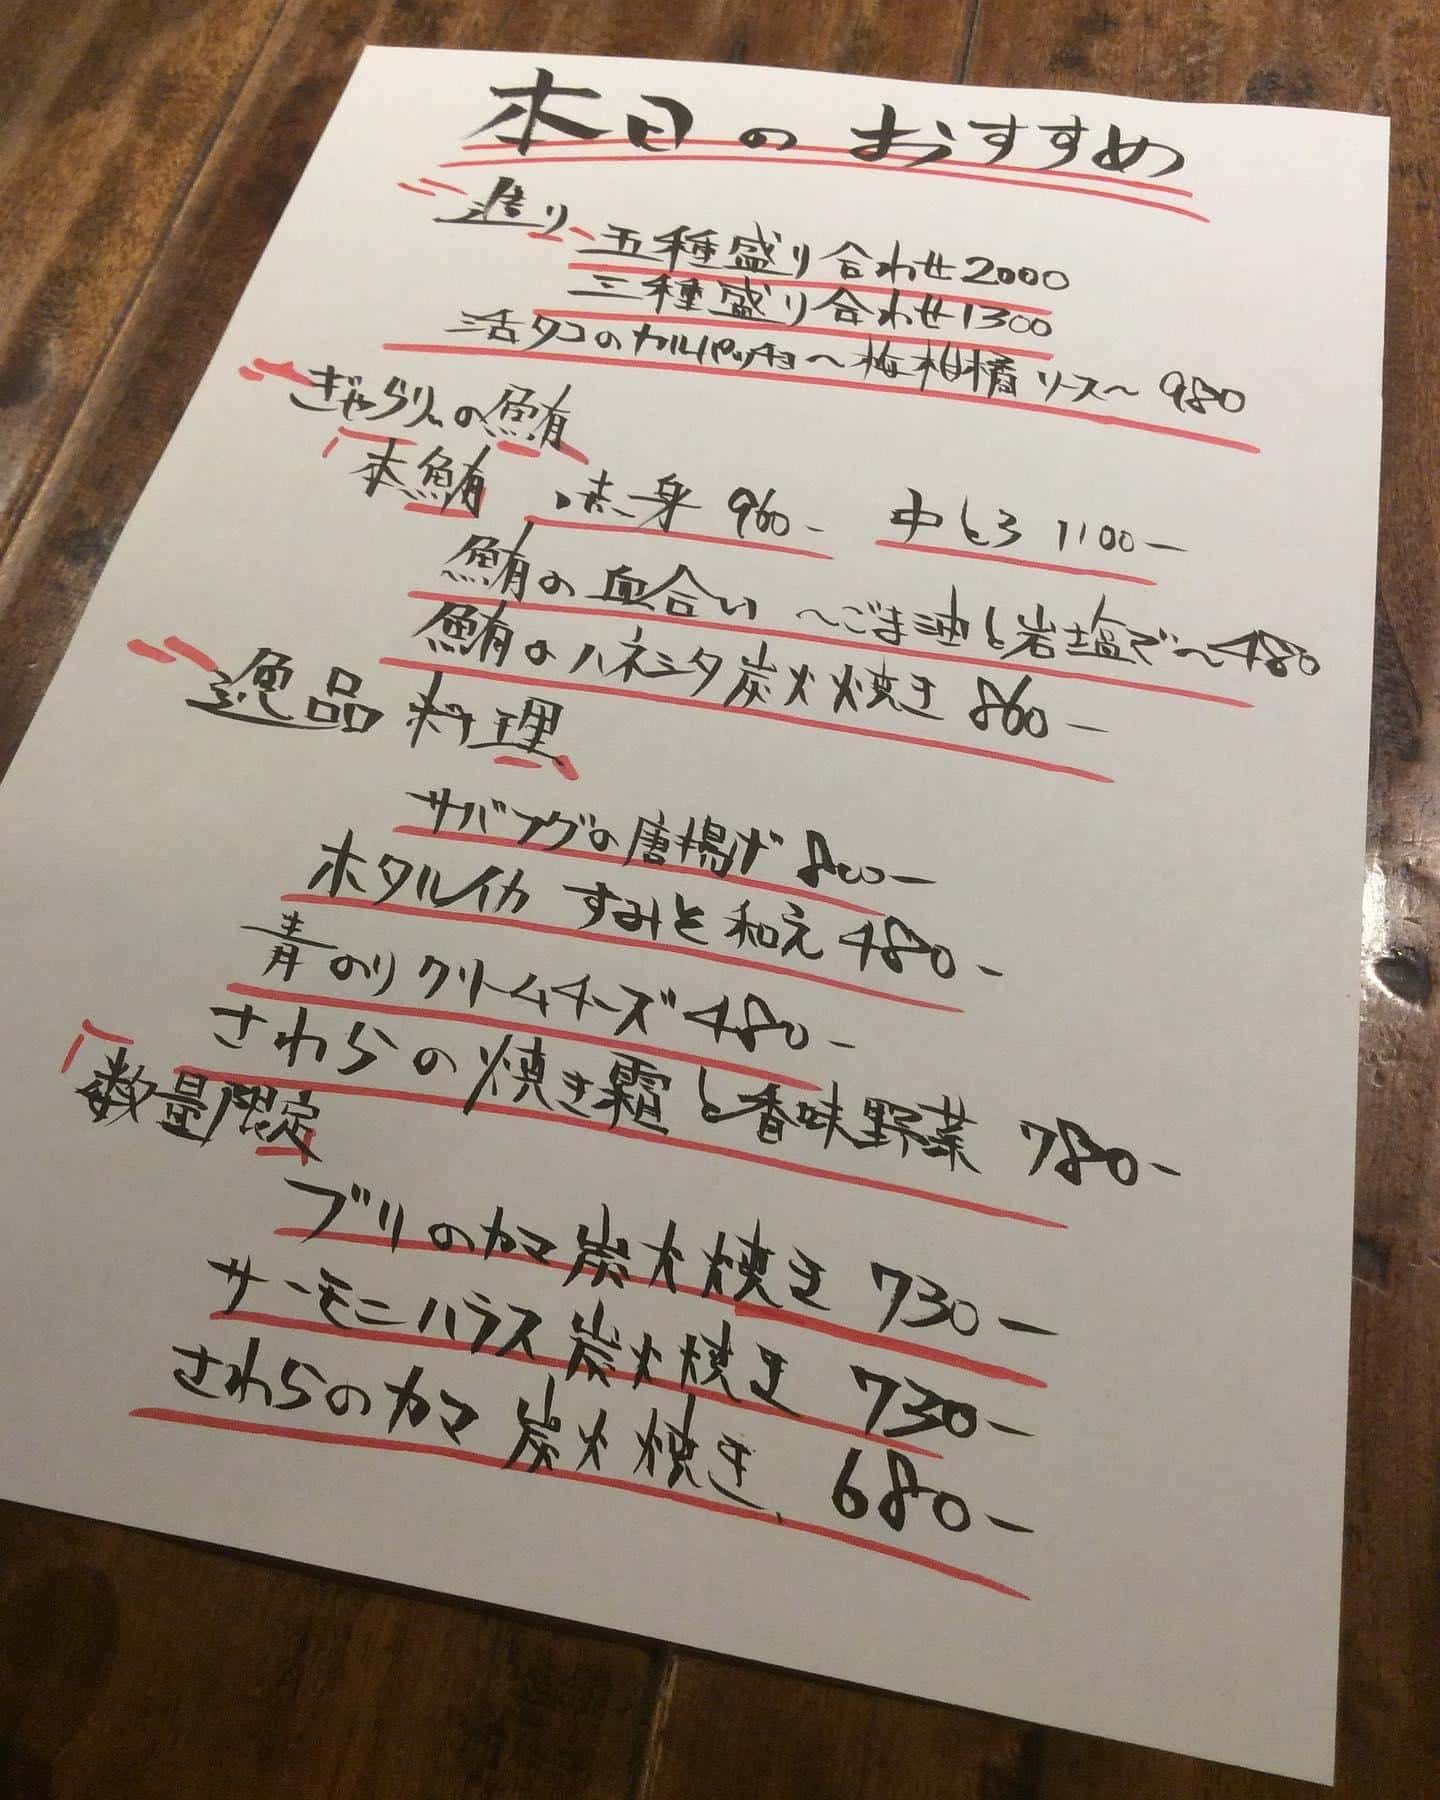 本日のおすすめ
造り 五種盛り合わせ2000
三種盛り合わせ1300
活タコのカルパッチョ〜梅柑橘ソース〜 980
ぎゃらりぃの鮪
本鮪 赤身 960- 中とろ 1100-
鮪の血合い 〜ごま油と岩塩で〜480
鮪のハネシタ炭火焼き 860-
逸品料理
サバフグの唐揚げ 800-
ホタルイカ すみそ和え 480-
青のりクリームチーズ480-
さわらの焼き霜と香味野菜 780-
数量限定
ブリのカマ炭火焼き 730-
サーモンハラス炭火焼き 730-
さわらのカマ 炭火焼き 680-